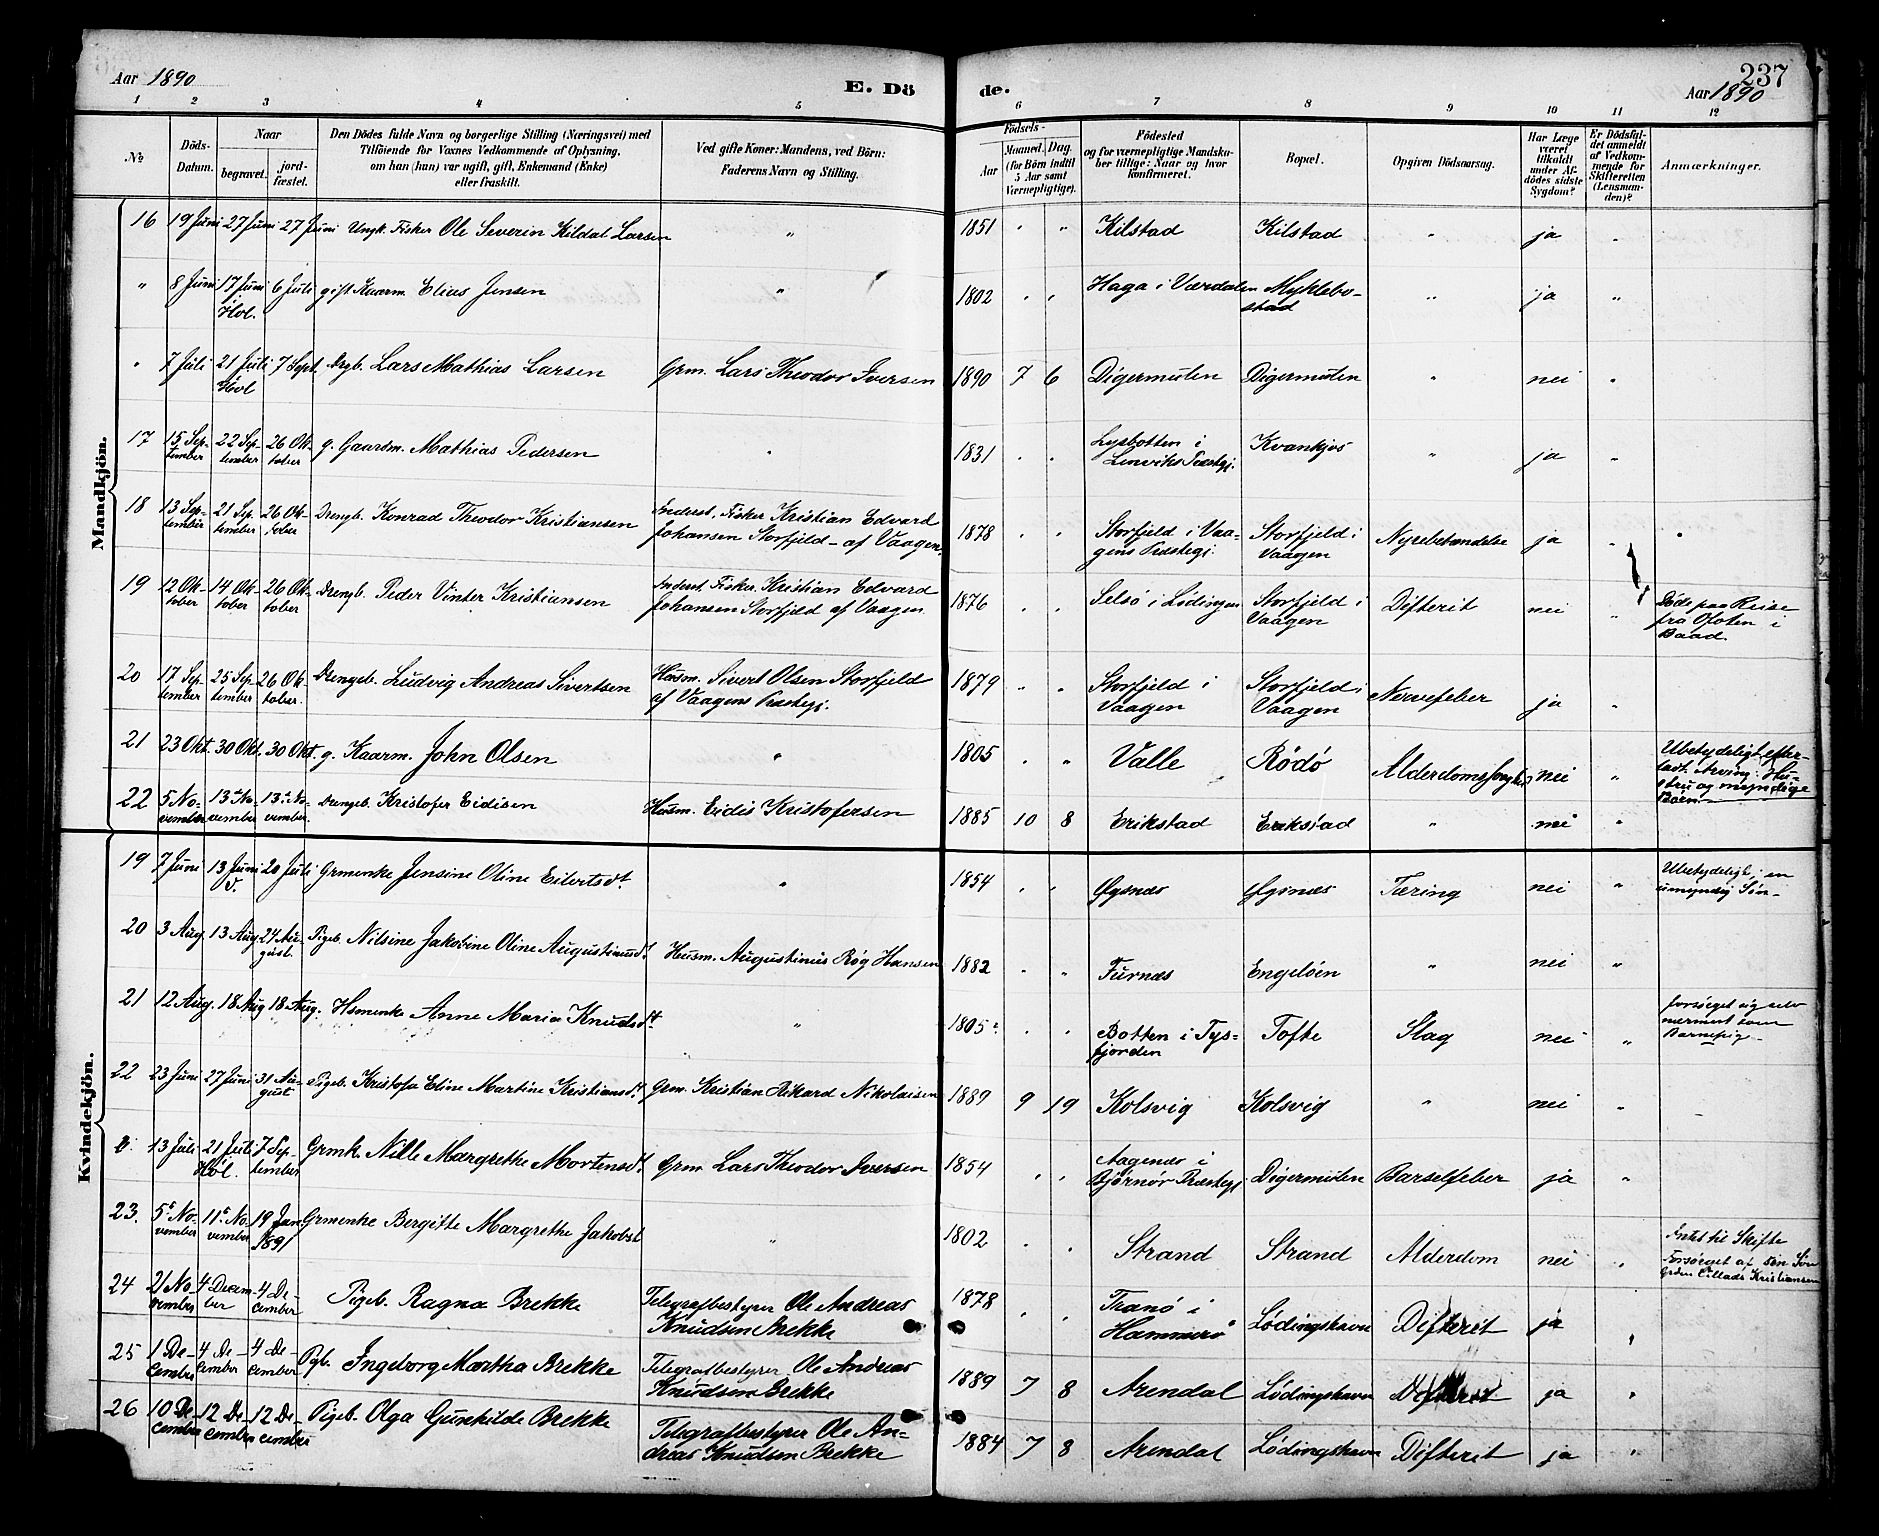 Aar 1890
E. Dö
de.
237
Aar 1890
1 2 3 4 5 6 7 8 9 10 11 12
No
Döds-
Datum.
Naar
begravet.
jord-
fæstet.
Den Dödes fulde Navn og borgerlige Stilling (Næringsvei) med
Tilföiende for Voxnes Vedkommende af Oplysning,
om han (hun) var ugift, gift, Enkemand (Enke)
eller fraskilt.
Ved gifte Koner: Mandens, ved Börn:
Faderens Navn og Stilling.
Födsels-
Aar
Maaned. Dag.
(for Börn indtil
5 Aar samt
Værnepligtige).
Födested
og for værnepligtige Mandska-
ber tillige: Naar og hvor
konfirmeret.
Bopæl.
Opgiven Dödsaarsag.
Har Læge
været
tilkaldt
under Af-
dödes sidste
Sygdom?
Er Dödsfal-
det anmeldt
af Vedkom-
mende for
Skifteretten
(Lensman-
den)?
Anmærkninger.
Mandkjön.
16 19 Juni 27 Juni 27 Juni Ungk. Fisker Ole Severin Kildal Larsen " 1851 " " Kilstad Kilstad " ja "
" 8 Juni 17 Juni i Hol. 6 Juli gift Kaarm. Elias Jensen " 1802 " " Haga i Værdalen Myklebo-
stad " ja "
" 7 Juli 21 Juli Hol 7 Sept. Drgb. Lars Mathias Larsen Grm. Lars Theodor Iversen 1890 7 6 Digermulen Digermulen " nei "
17 15 Sep-
tember 22 Sep-
tember 26 Ok-
tober g. Gaardm. Mathias Pedersen " 1831 " " Lysbotten i
Lenviks Præstegj. Kvankjos " ja "
18 13 Sep-
tember 21 Sep-
tember 26 Ok-
tober Drengb. Konrad Theodor Kristiansen Inderst, Fisker Kristian Edvard
Johansen Storfjeld - af Vaagen. 1878 " " Storfjeld i Vaa-
gens Præstegj. Storfjeld i
Vaagen Nyrebetændelse ja " "
19 12 Ok-
tober 14 Ok-
tober 26 Ok-
tober Drengb. Peder Vinter Kristiansen Inderst Fisker Kristian Edvard
Johansen Storfjeld af Vaagen 1876 " " Selsø i Lødingen Storfjeld i
Vaagen Difterit nei " Døde paa Reise
fra Ofoten i
Baad
20 17 Sep-
tember 25 Sep-
tember 26 Ok-
tober. Drengeb. Ludvig Andreas Sivertsen Husm. Sivert Olsen Storfjeld
af Vaagens Præstegj. 1879 " " Storfjeld i
Vaagen Storfjeld i
Vaagen Nervefeber ja "
21 23 Okt. 30 Okt. 30 Okt. g. Kaarm. John Olsen " 1805 " " Valle Rödö nei " Ubetydeligt efter-
ladt. Arving: Hu-
stru og myndige
Börn
22 5 No-
vember 13 No-
vember 13 No-
vember. Drengeb. Kristofer Eidisen Husm. Eidis Kristofersen 1885 10 8 Erikstad Erikstad " nei "
Kvindekjön.
19 7 Juni 13 Juni 20 Juli Grmenke Jensine Oline Eilertsdt. " 1854 " " Øgsnæs Øgsnæs Tæring nei " Ubetydeligt; en
umyndig Søn-
20 3 Aug. 13 Aug 24 Au-
gust. Pigeb. Nilsine Jakobine Oline Augustinusdt. Husm. Augustinus Røg Hansen 1882 " " Furnæs Engeløen " nei "
21 12 Aug. 18 Aug 18 Aug. Hsmenke Anne Maria Knudsdt. " 1805 " " Botten i Tys-
fjorden Tofte Slag nei " forsørget sig selv
nærmest som
Barnepige-
22 23 Juni 27 Juni 31 Au-
gust Pigeb. Kristofa Eline Martine Kristiansdt. Grm. Kristian Rikard Nikolaisen 1889 9 19 Kolsvig Kolsvig " nei "
13 Juli 21 Juli
Hol. 7 Sep-
tember Grmk. Nille Margrethe Mortensdt. Grm. Lars Theodor Iversen 1854 " " Aagenæs i
Bjørnør Præstegj Digermulen Barselfeber ja "
23. 5 No-
vember 11 No-
vember 19 Jan
1891 Grmenke Bergitte Margrethe Jakobsdt " 1802 " " Strand Strand Alderdom nei " Intet til Skifte
Forsørget af sön Søn
Kristiansen
24 21 No-
vember 4 Decem-
ber 4 De-
cember Pigeb. Ragna Brekke Telegrafbestyrer Ole Andreas
Knudsen Brekke 1878 " " Tranö i
Hammerö Lødingshavn Difterit ja "
25 1 De-
cember 4 De-
cember 4 De-
cember Pgb. Ingeborg Martha Brekke Telegrafbestyrer Ole Andreas
Knudsen Brekke 1889 7 8 Arendal Lødingshavn Difterit ja "
26 10 De-
cember 12 De-
cember 12 De-
cember Pigeb. Olga Gunhilde Brekke Telegrafbestyrer Ole An-
dreas Knudsen Brekke 1884 7 8 Arendal Lødingshavn Difterit ja "